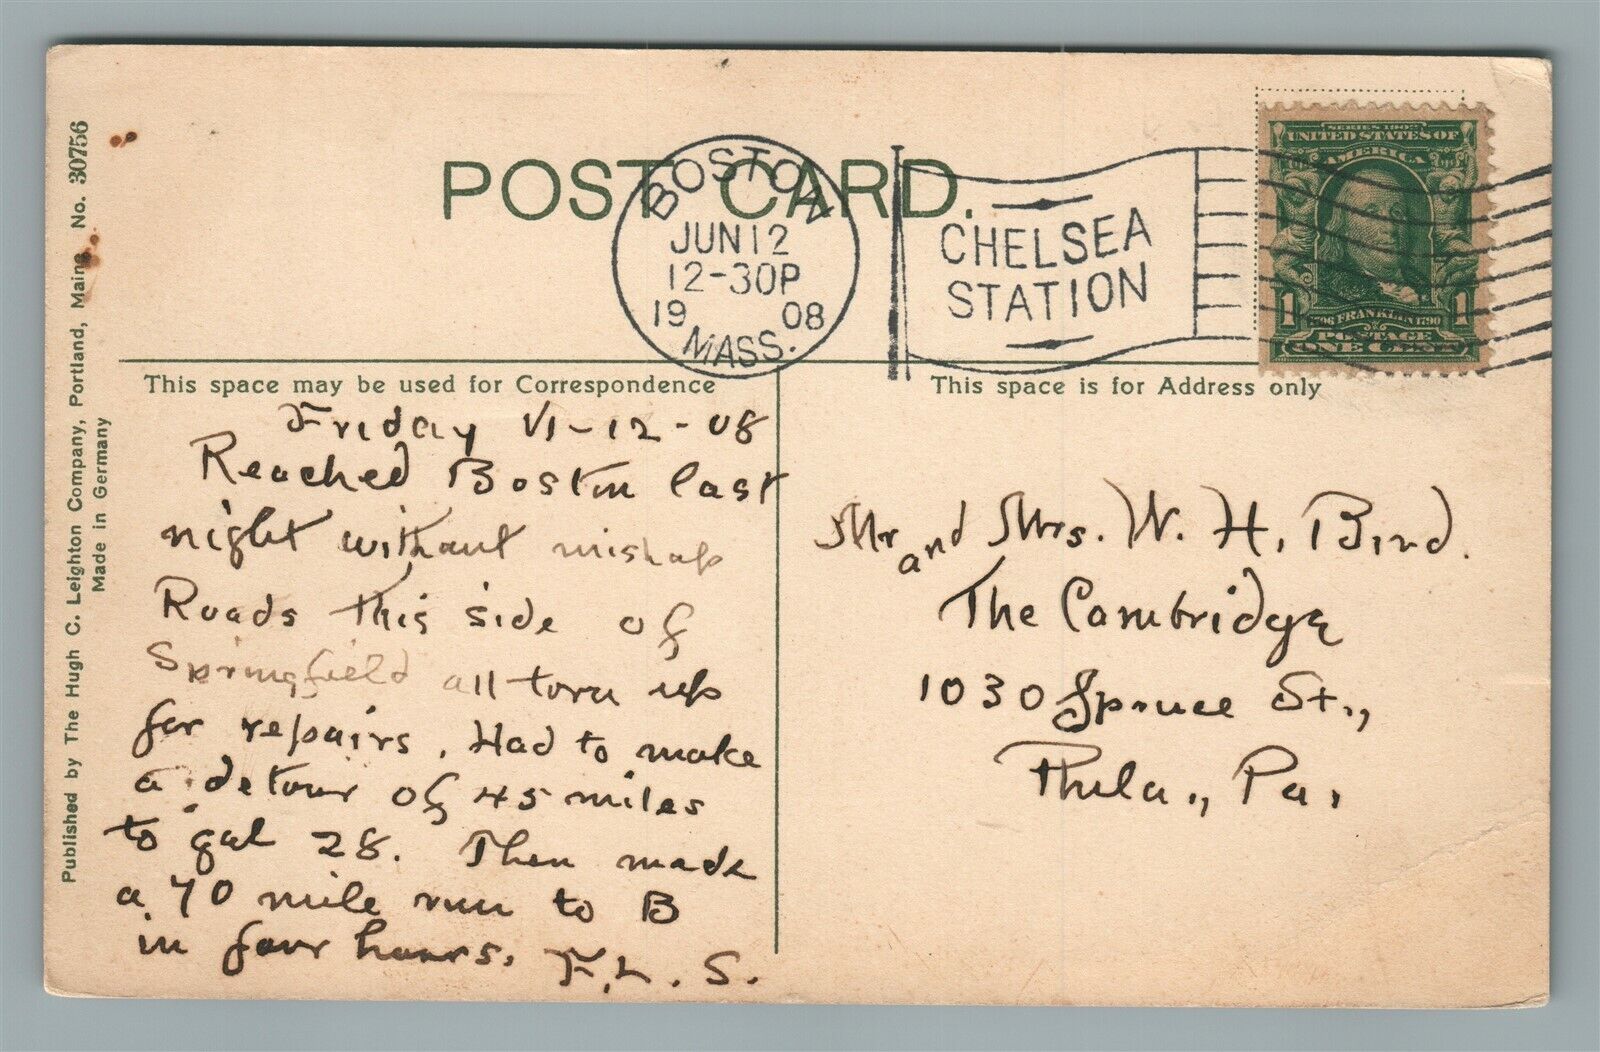 POST CARD.
BOSTON
JUN 12
12-30P
19 08
MASS.
CHELSEA
STATION
SERIES 1902
UNITED STATES OF
AMERICA
1 1
1706 FRANKLIN 1790
POSTAGE
ONE CENT
Published by The Hugh C. Leighton Company, Portland, Maine. No. 30756
Made in Germany
This space may be used for Correspondence
Friday VI-12-08
Reached Boston last
night without mishap
Roads this side of
Springfield all torn up
for repairs. Had to make
a detour of 45 miles
to gal 28. Then made
a 70 mile run to B
in four hours. F.L.S.
This space is for Address only
Mr and Mrs. W. H. Bird.
The Cambridge
1030 Spruce St.,
Phila., Pa.